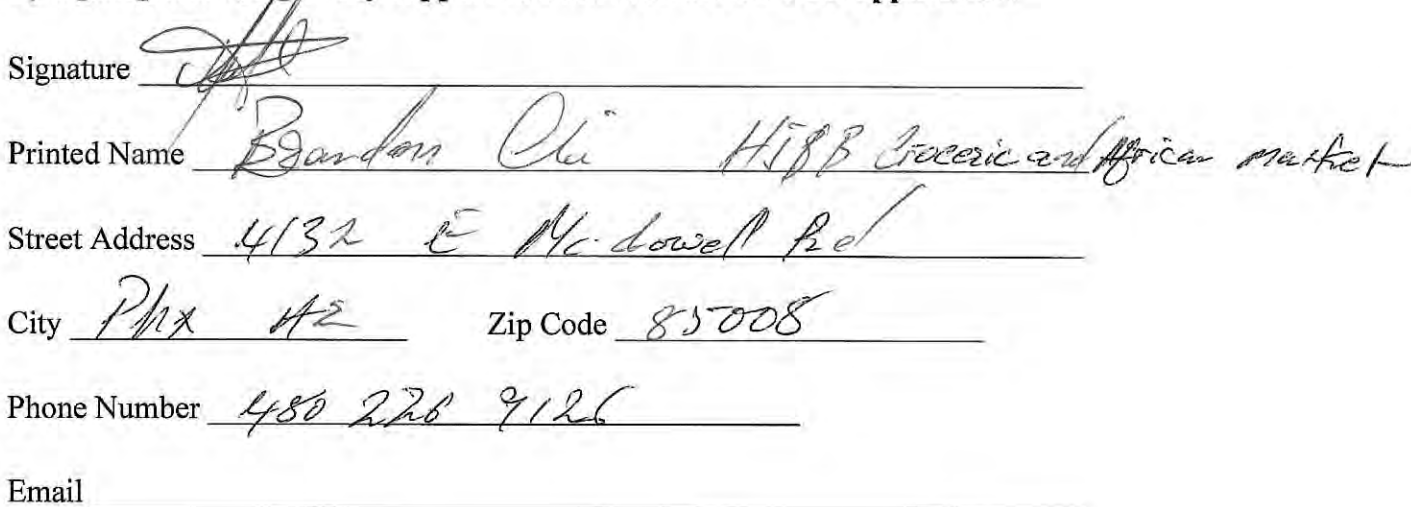 Signature
Printed Name Brandon HIBB and African market
Street Address 4132 E Mc.dowell Rd
City Phx AZ Zip Code 85008
Phone Number 480 226 9126
Email